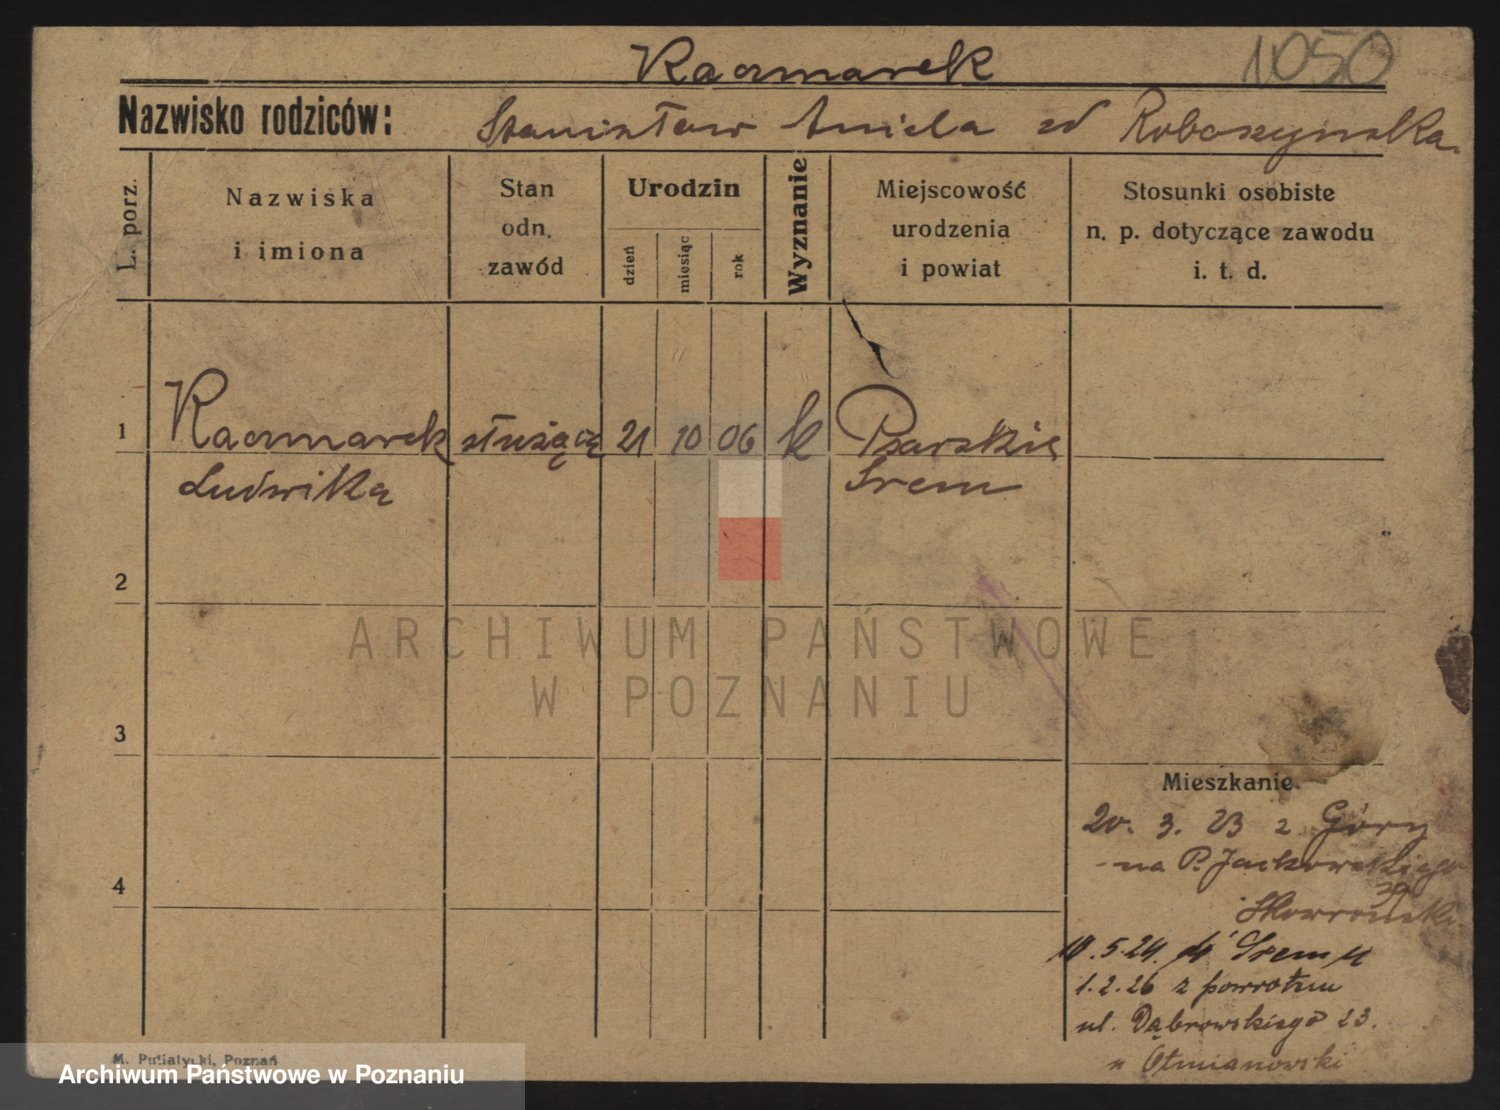 1050
Kaczmarek
Nazwisko rodziców: Stanisław Aniela zd Roboszynska
L. porz.
Nazwiska
i imiona
Stan
odn.
zawód
Urodzin
dzień
miesiąc
rok
Wyznanie
Miejscowość
urodzenia
i powiat
Stosunki osobiste
n. p. dotyczące zawodu
i. t. d.
1 Kaczmarek służącą 21 10 06 k Psarskie
Ludwika Srem
2
3
4
ARCHIWUM PAŃSTWOWE
W POZNANIU
Mieszkanie
20. 3. 23 z Góry
na P. Jackowskiego
Skowroński
5.24. Srem
1.2.26 z powrotem
ul. Dąbrowskiego 23.
Otmianowski
M. Putiatycki, Poznań
Archiwum Państwowe w Poznaniu